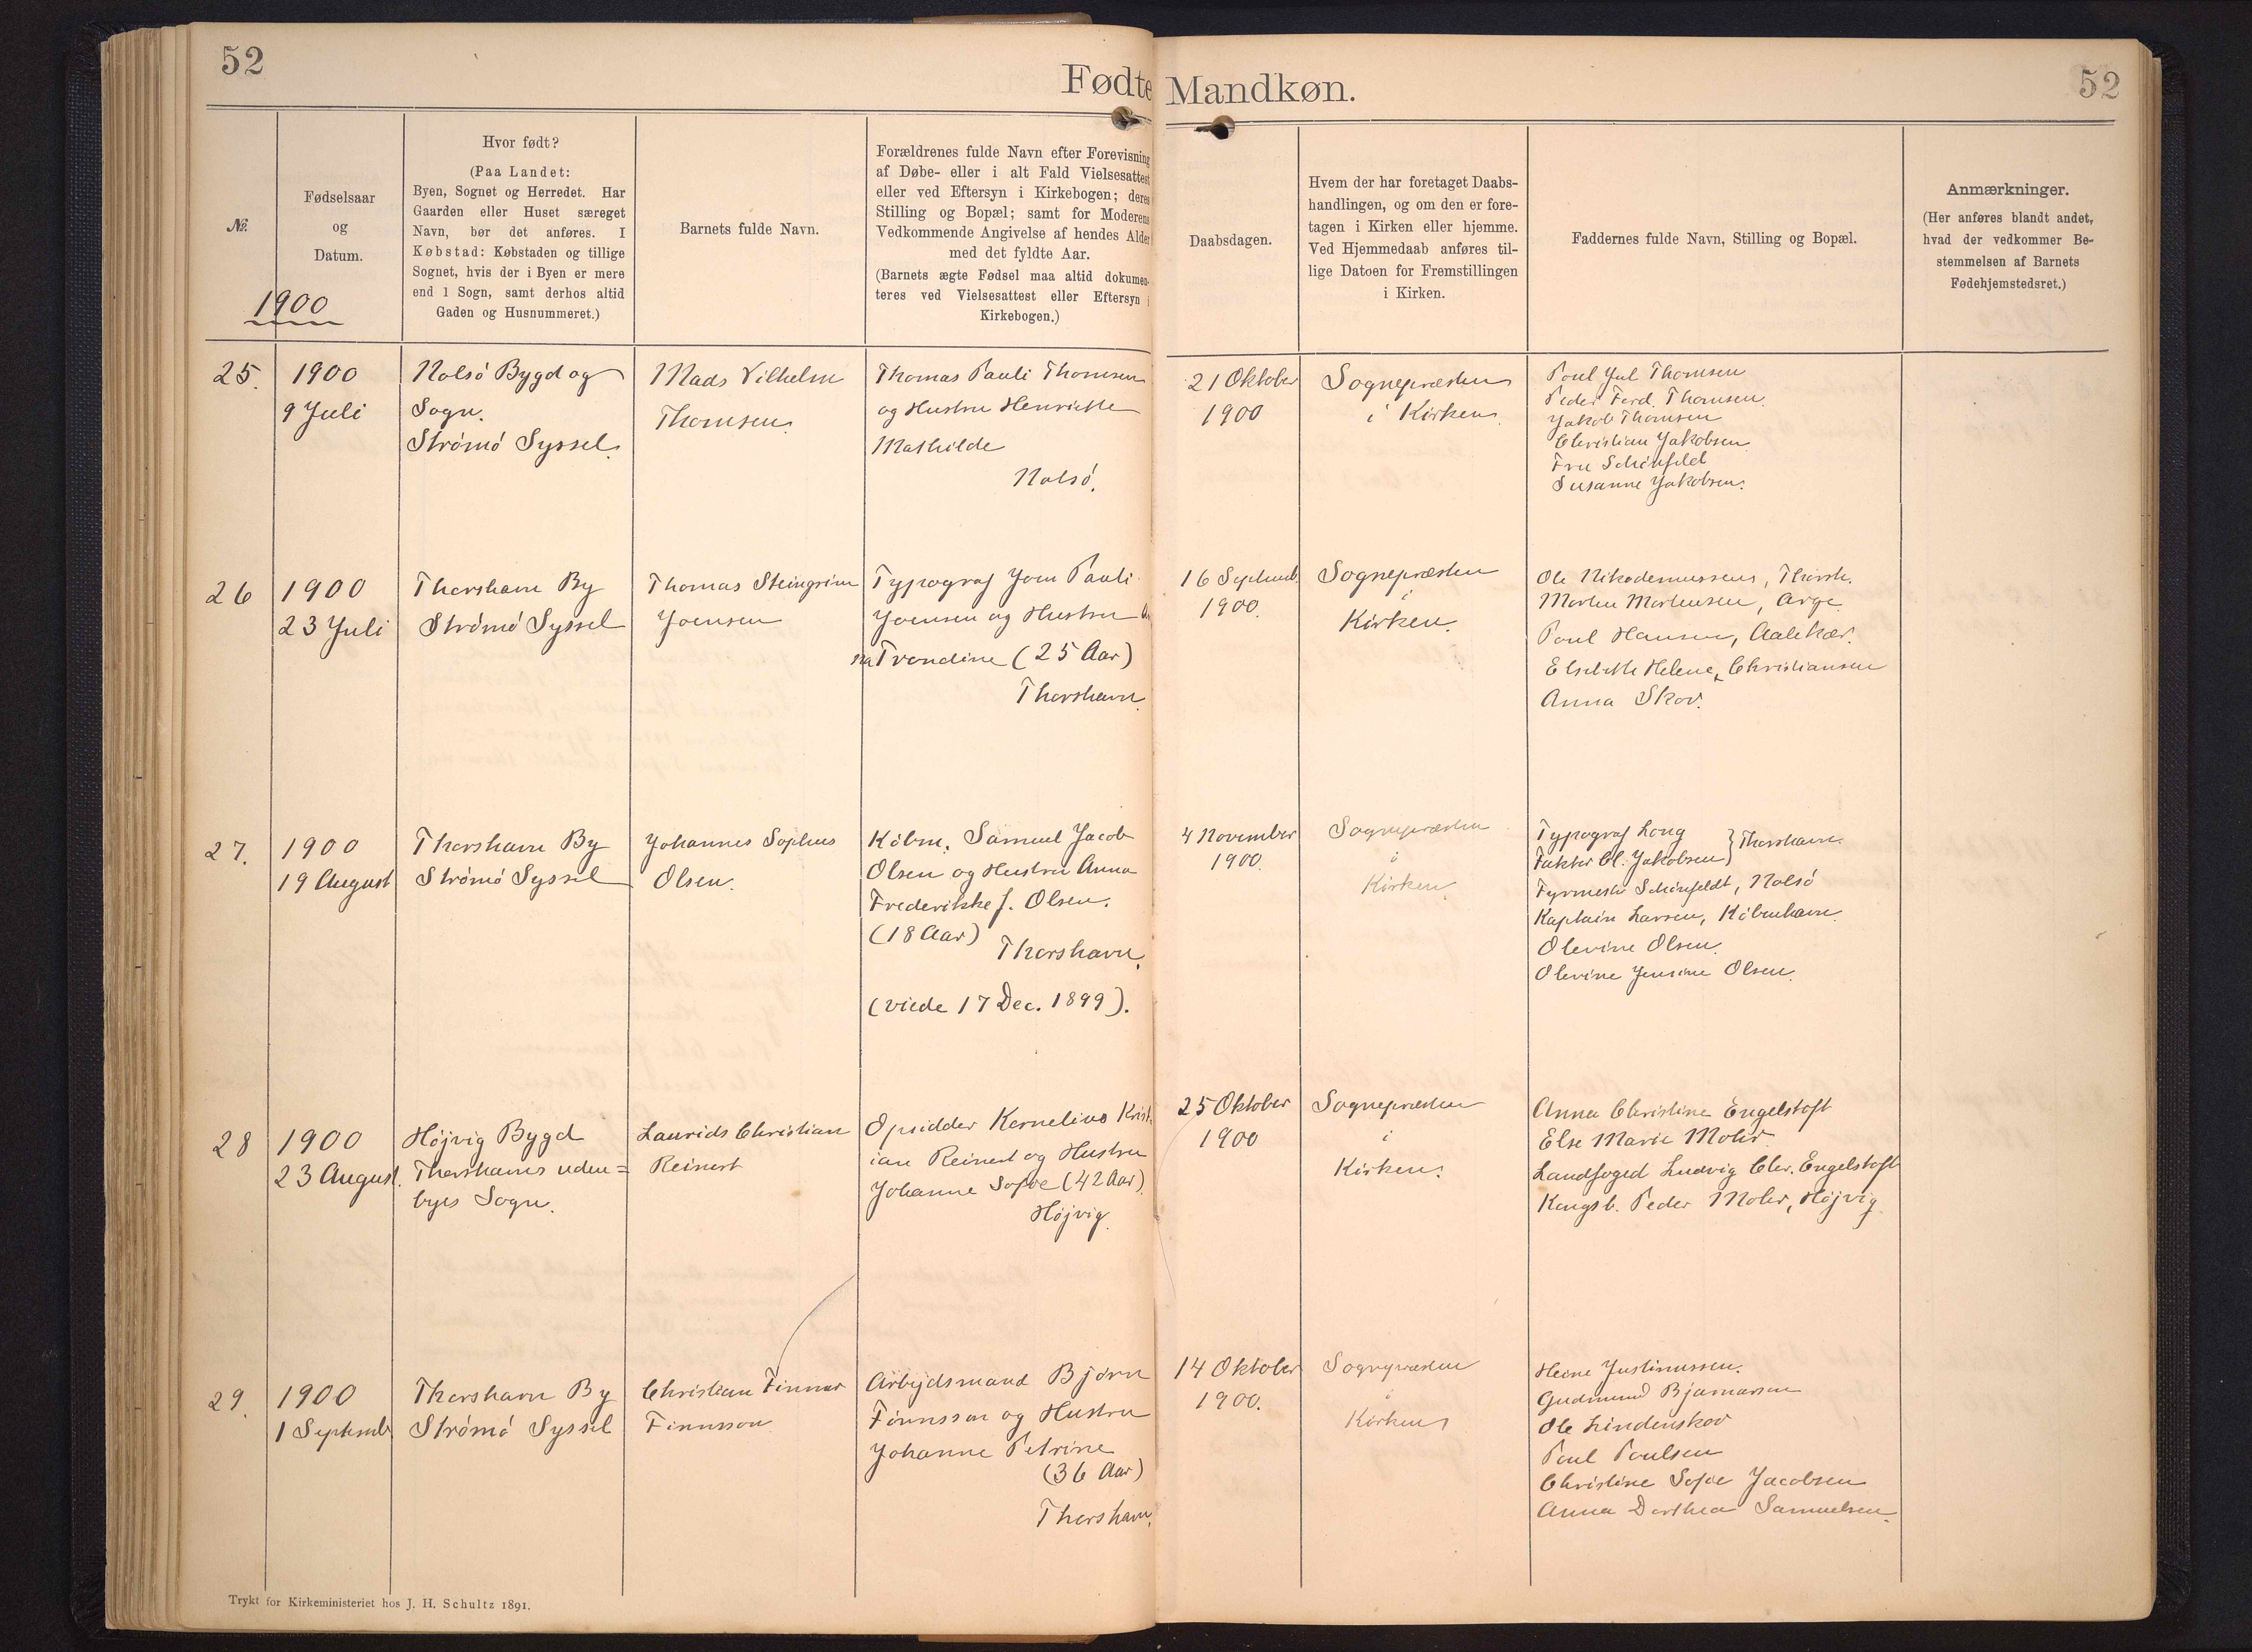 52
Fødte Mandkøn.
52
№
Fødselsaar
og
Datum.
1900
Hvor født?
(Paa Landet:
Byen, Sognet og Herredet. Har
Gaarden eller Huset særeget
Navn, bør det anføres. I
Købstad: Købstaden og tillige
Sognet, hvis der i Byen er mere
end 1 Sogn, samt derhos altid
Gaden og Husnummeret.)
Barnets fulde Navn.
Forældrenes fulde Navn efter Forevisning
af Døbe- eller i alt Fald Vielsesattest
eller ved Eftersyn i Kirkebogen; deres
Stilling og Bopæl; samt for Moderens
Vedkommende Angivelse af hendes Alder
med det fyldte Aar.
(Barnets ægte Fødsel maa altid dokumen-
teres ved Vielsesattest eller Eftersyn i
Kirkebogen.)
Daabsdagen.
Hvem der har foretaget Daabs-
handlingen, og om den er fore-
tagen i Kirken eller hjemme.
Ved Hjemmedaab anføres til-
lige Datoen for Fremstillingen
i Kirken.
Faddernes fulde Navn, Stilling og Bopæl.
Anmærkninger.
(Her anføres blandt andet,
hvad der vedkommer Be-
stemmelsen af Barnets
Fødehjemstedsret.)
25.
1900
9 Juli
Nolsø Bygd og
Sogn.
Strømø Syssel.
Mads Vilhelm
Thomsen.
Thomas Pauli Thomsen
og Hustru Henriette
Mathilde
Nolsø.
21 Oktober
1900
Sognepræsten
i Kirken.
Poul Jul Thomsen
Peder Ferd. Thomsen.
Jakob Thomsen
Christian Jakobsen
Fru Schönfeld
Susanne Jakobsen.
26
1900
23 Juli
Thorshavn By
Strømø Syssel
Thomas Steingrim
Joensen
Typograf Joen Pauli
Joensen og Hustru An
na Trondine (25 Aar)
Thorshavn.
16 Septemb.
1900.
Sognepræsten
i
Kirken.
Ole Nikodemussens, Thorsh.
Morten Mortensen, Arge.
Poul Hansen, Aalekær.
Elsebeth Helene Christiansen
Anna Skov.
27.
1900
19 August
Thorshavn By
Strømø Syssel
Johannes Sophus
Olsen.
Købm. Samuel Jacob
Olsen og Hustru Anna
Frederikke f. Olsen.
(18 Aar)
Thorshavn.
(viede 17 Dec. 1899).
4 November
1900.
Sognepræsten
i
Kirken
Typograf Long
Faktor Cl. Jakobsen } Thorshavn.
Fyrmester Schönfeldt, Nolsø
Kaptain Larsen, København.
Olevine Olsen.
Olevine Jensine Olsen.
28
1900
23 August.
Højvig Bygd
Thorshavns uden=
byes Sogn.
Laurids Christian
Reinert
Opsidder Kornelius Krist-
ian Reinert og Hustru
Johanne Sofie (42 Aar).
Højvig.
25 Oktober
1900
Sognepræsten
i
Kirken.
Anna Christine Engelstoft
Else Marie Mohr
Landfoged Ludvig Chr. Engelstoft
Kongsb. Peder Mohr, Højvig.
29.
1900
1 Septemb.
Thorshavn By
Strømø Syssel
Christian Finnur
Finnsson
Arbejdsmand Bjørn
Finnsson og Hustru
Johanne Petrine
(36 Aar)
Thorshavn.
14 Oktober
1900.
Sognepræsten
i
Kirken
Heine Justinussen.
Gudmund Bjarnarson
Ole Lindenskov
Poul Poulsen
Christine Sofie Jacobsen
Anna Dorthea Samuelsen.
Trykt for Kirkeministeriet hos J. H. Schultz 1891.